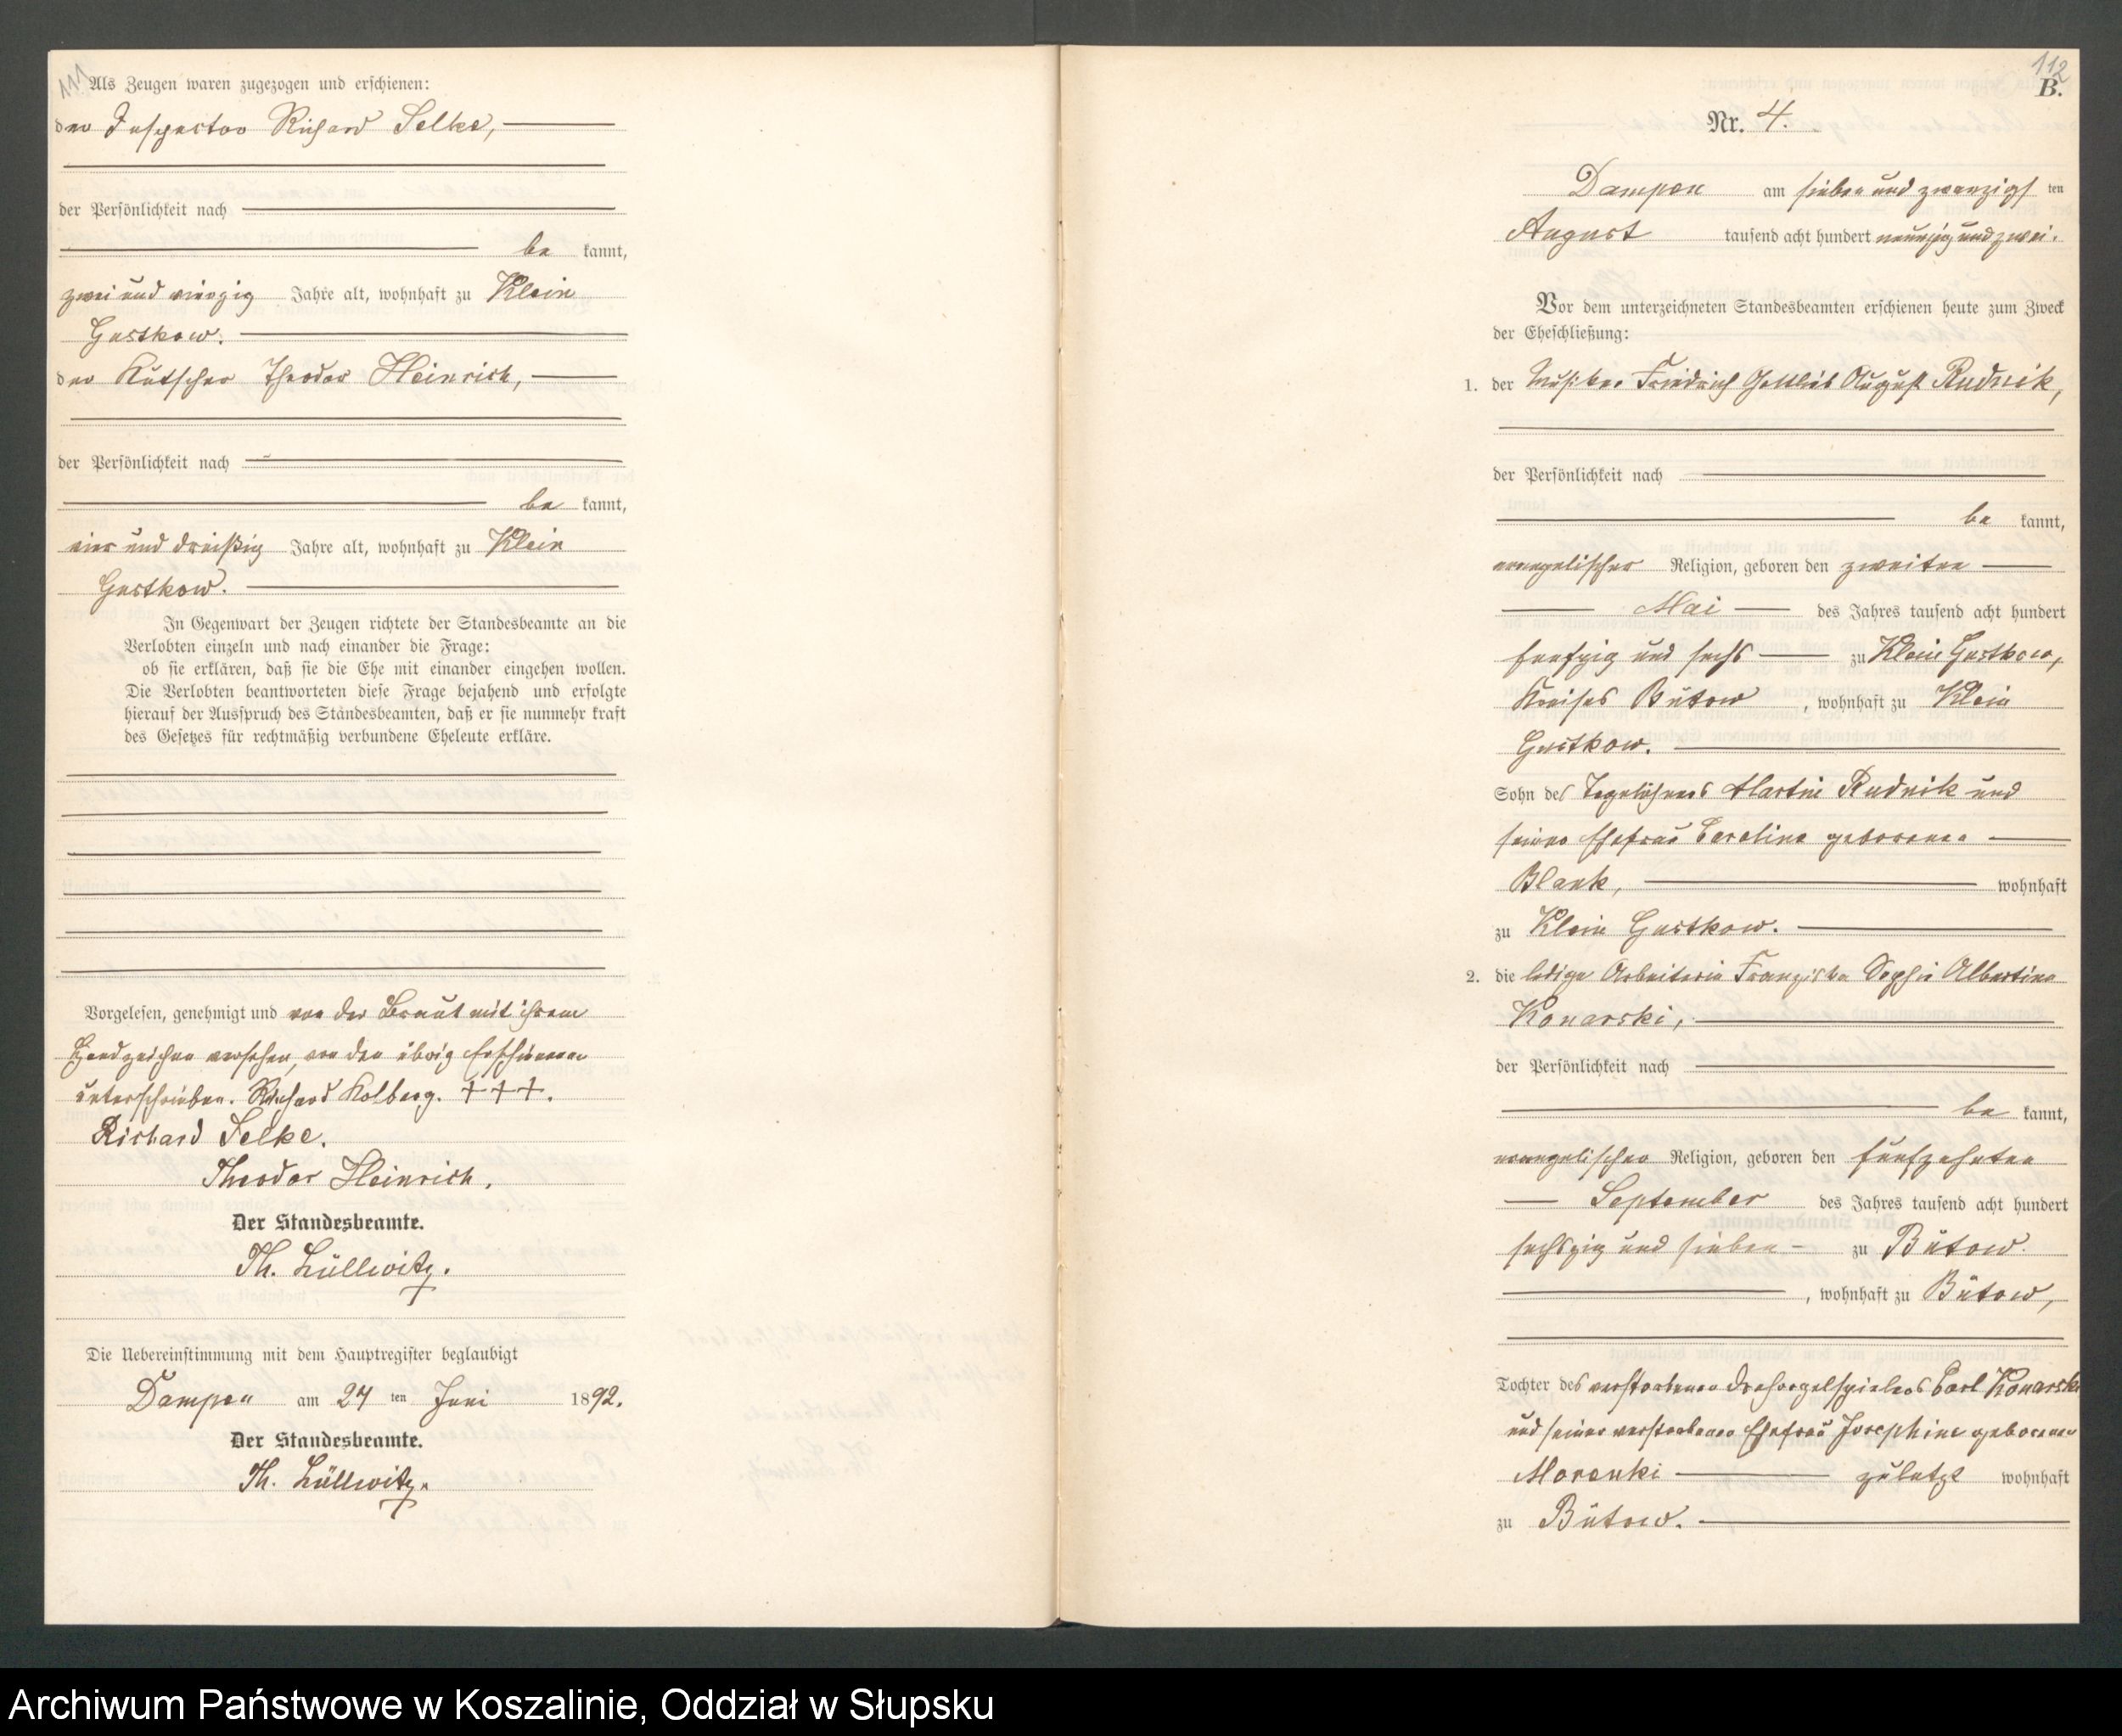 111
Als Zeugen waren zugezogen und erschienen:
der Inspector Richard Selke,
der Persönlichkeit nach
be kannt,
zwei und vierzig Jahre alt, wohnhaft zu Klein
Gustkow.
der Kutscher Theodor Heinrich,
der Persönlichkeit nach
be kannt,
vier und dreißig Jahre alt, wohnhaft zu Klein
Gustkow.
In Gegenwart der Zeugen richtete der Standesbeamte an die
Verlobten einzeln und nach einander die Frage:
ob sie erklären, daß sie die Ehe mit einander eingehen wollen.
Die Verlobten beantworteten diese Frage bejahend und erfolgte
hierauf der Ausspruch des Standesbeamten, daß er sie nunmehr kraft
des Gesetzes für rechtmäßig verbundene Eheleute erkläre.
Vorgelesen, genehmigt und von der Braut mit ihrem
Handzeichen versehen, von den übrig Erschienenen
unterschrieben. Richard Kolberg. +++.
Richard Selke.
Theodor Heinrich.
Der Standesbeamte.
Th. Lüllwitz.
Die Uebereinstimmung mit dem Hauptregister beglaubigt
Dampen am 27 ten Juni 1892.
Der Standesbeamte.
Th. Lüllwitz.
112
B.
Nr. 4.
Dampen am sieben und zwanzigs ten
August tausend acht hundert neunzig und zwei.
Vor dem unterzeichneten Standesbeamten erschienen heute zum Zweck
der Eheschließung:
1. der Musiker Friedrich Gottlieb August Rudnik,
der Persönlichkeit nach
be kannt,
evangelischer Religion, geboren den zweiten
Mai des Jahres tausend acht hundert
funfzig und sechs zu Klein Gustkow,
Kreises Bütow, wohnhaft zu Klein
Gustkow.
Sohn des Tagelöhners Martin Rudnik und
seiner Ehefrau Caroline geborenen
Blank, wohnhaft
zu Klein Gustkow.
2. die ledige Arbeiterin Franziska Sophie Albertine
Konarski,
der Persönlichkeit nach
be kannt,
evangelischer Religion, geboren den funfzehnten
September des Jahres tausend acht hundert
sechszig und sieben zu Bütow
, wohnhaft zu Bütow,
Tochter des verstorbenen Drehorgelspielers Carl Konarski
und seiner verstorbenen Ehefrau Josephine geborenen
zuletzt wohnhaft
zu Bütow.
Archiwum Państwowe w Koszalinie, Oddział w Słupsku